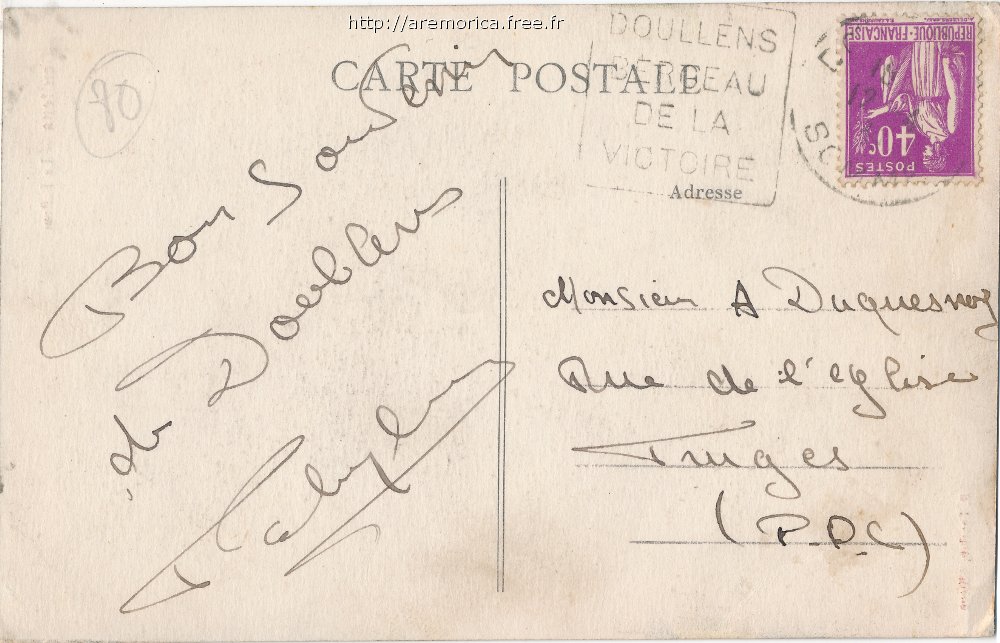 http://aremorica.free.fr
CARTE POSTALE
DOULLENS
BERCEAU
DE LA
VICTOIRE
REPUBLIQUE·FRANÇAISE
40c
POSTES
80
Adresse
Bon Souvenir
de Doullens
Monsieur A Duquesnoy
Rue de l'eglise
Fruges
(P.D.C)